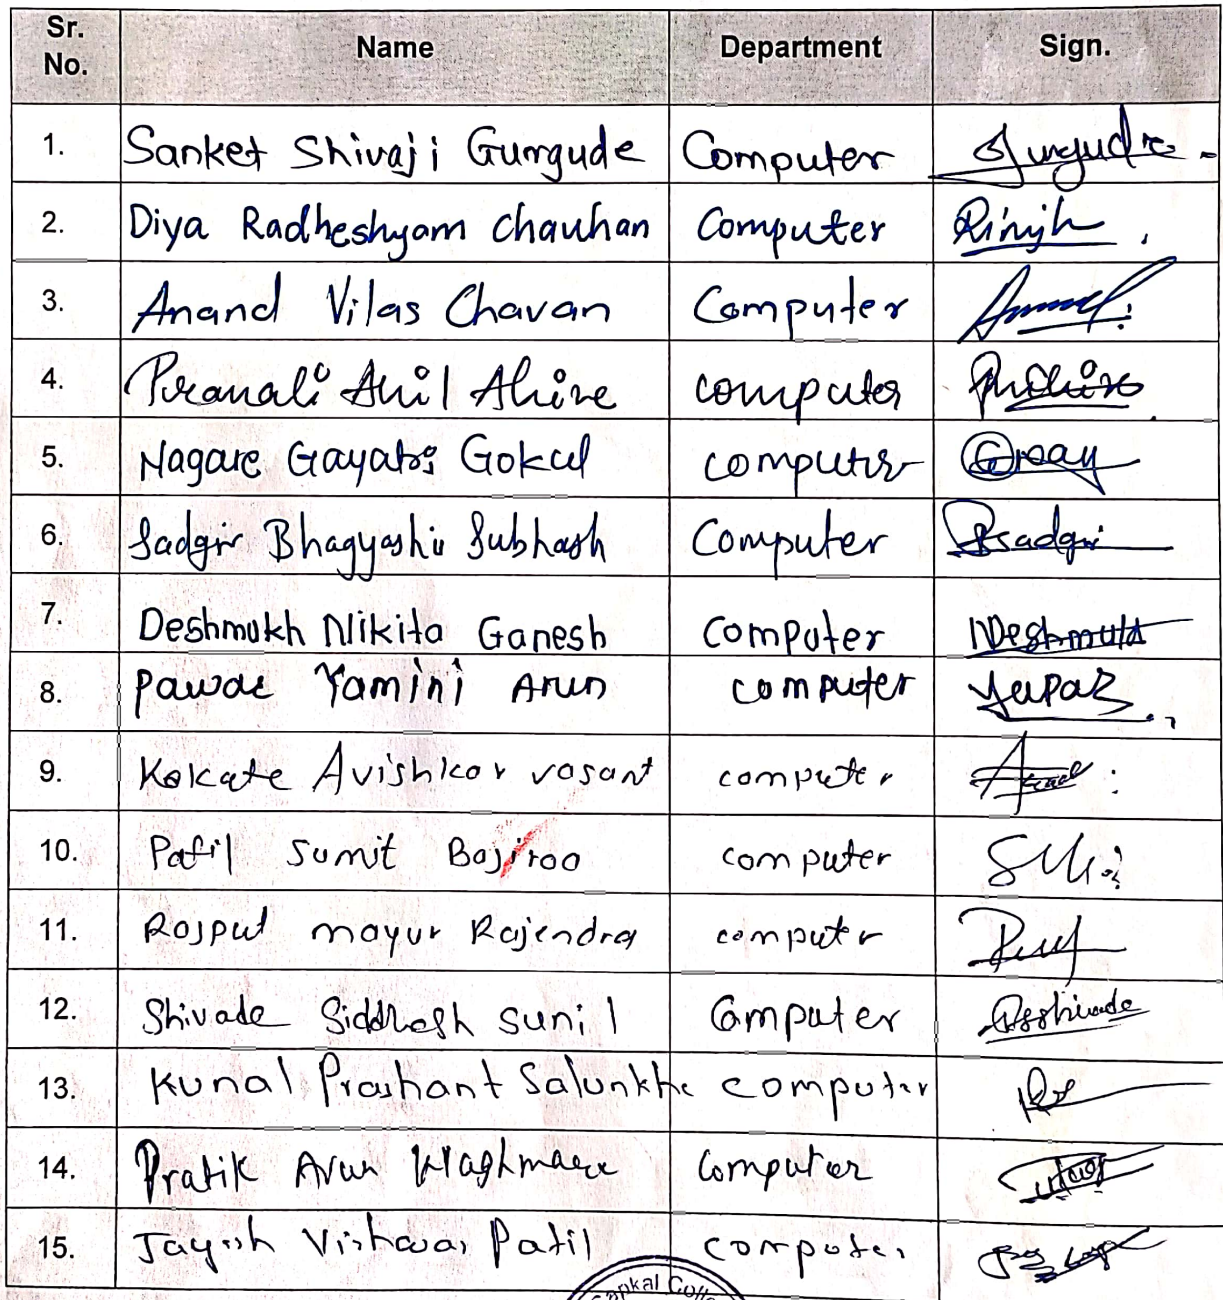 Sr. No. Name Department Sign.
1. Sanket Shivaji Gungude Computer Gungude
2. Diya Radheshyam Chauhan Computer
3. Anand Vilas Chavan Computer
4. Pranali Anil Ahire computer
5. Nagare Gayatri Gokul computer
6. Sadgir Bhagyashri Subhash Computer Bsadgir
7. Deshmukh Nikita Ganesh Computer NDeshmukh
8. Pawar Yamini Arun computer
9. Kokate Avishkar vasant computer
10. Patil Sumit Bajirao computer
11. Rajput mayur Rajendra computer
12. Shivade Siddhesh sunil Computer
13. Kunal Prashant Salunkhe computer
14. Pratik Arun Waghmare Computer
15. Jayesh Vishwas Patil computer